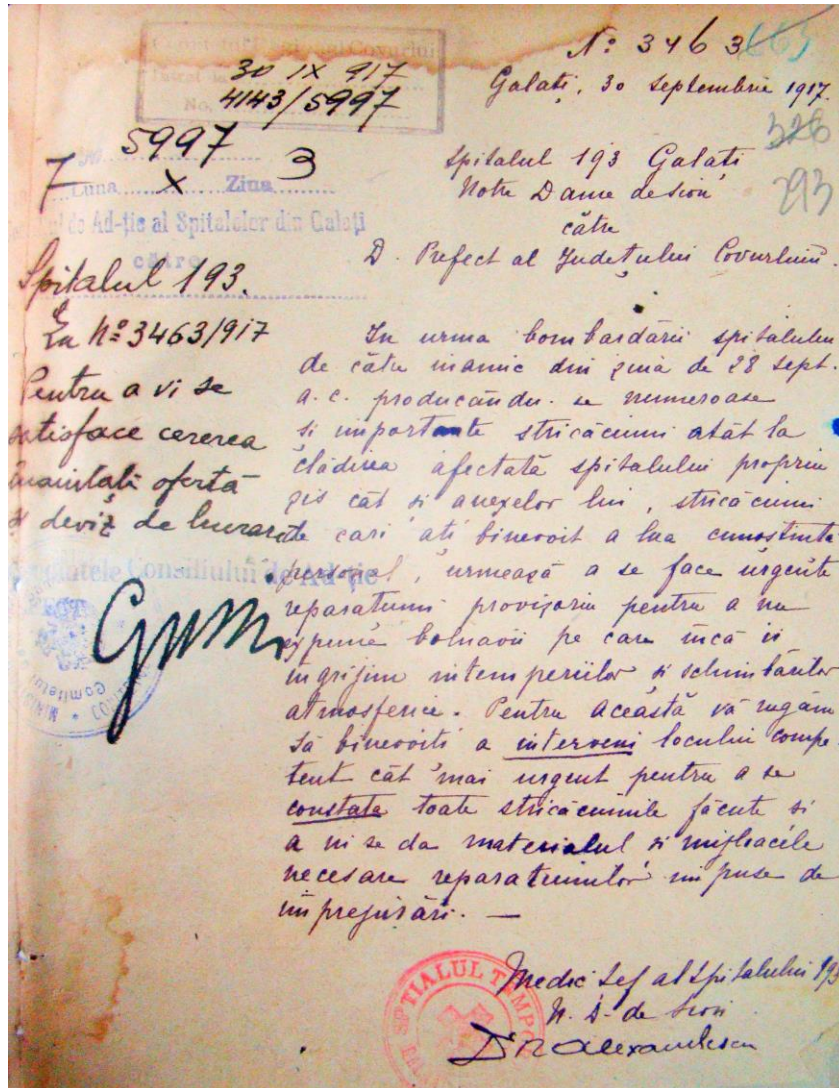 Nº 3463
Galați, 30 Septembrie 1917.
30 IX 917
No. 4143/5997
5997
7 Luna X Ziua 3
de Ad-ție al Spitalelor din Galați
către
Spitalul 193.
La Nº 3463/917
Pentru a vi se
satisface cererea
înaintați ofertă
și deviz de lucrare
Consiliului de Ad-ție
326
293
Spitalul 193 Galați
Notre Dame de Sion
către
D. Prefect al Județului Covurluiu.
In urma bombardării spitalului
de către inamic din ziua de 28 sept.
a. c. producându-se numeroase
si importante stricăciuni atât la
clădirea afectată spitalului propriu
zis cât si anexelor lui, stricăciuni
de cari ati binevoit a lua cunostinta
personal, urmează a se face urgente
reparatiuni provizorii pentru a nu
expune bolnavii pe care încă ii
ingrijim intemperiilor si schimbărilor
atmosferice. Pentru această vă rugăm
să binevoiti a interveni locului compe
tent cât mai urgent pentru a se
constata toate stricăciunile făcute si
a ni se da materialul si mijloacele
necesare reparatiunilor impuse de
imprejurări. —
Medic Sef al Spitalului 193
N. D. de Sion
Dr Alexandrescu
SPITALUL TEMPO